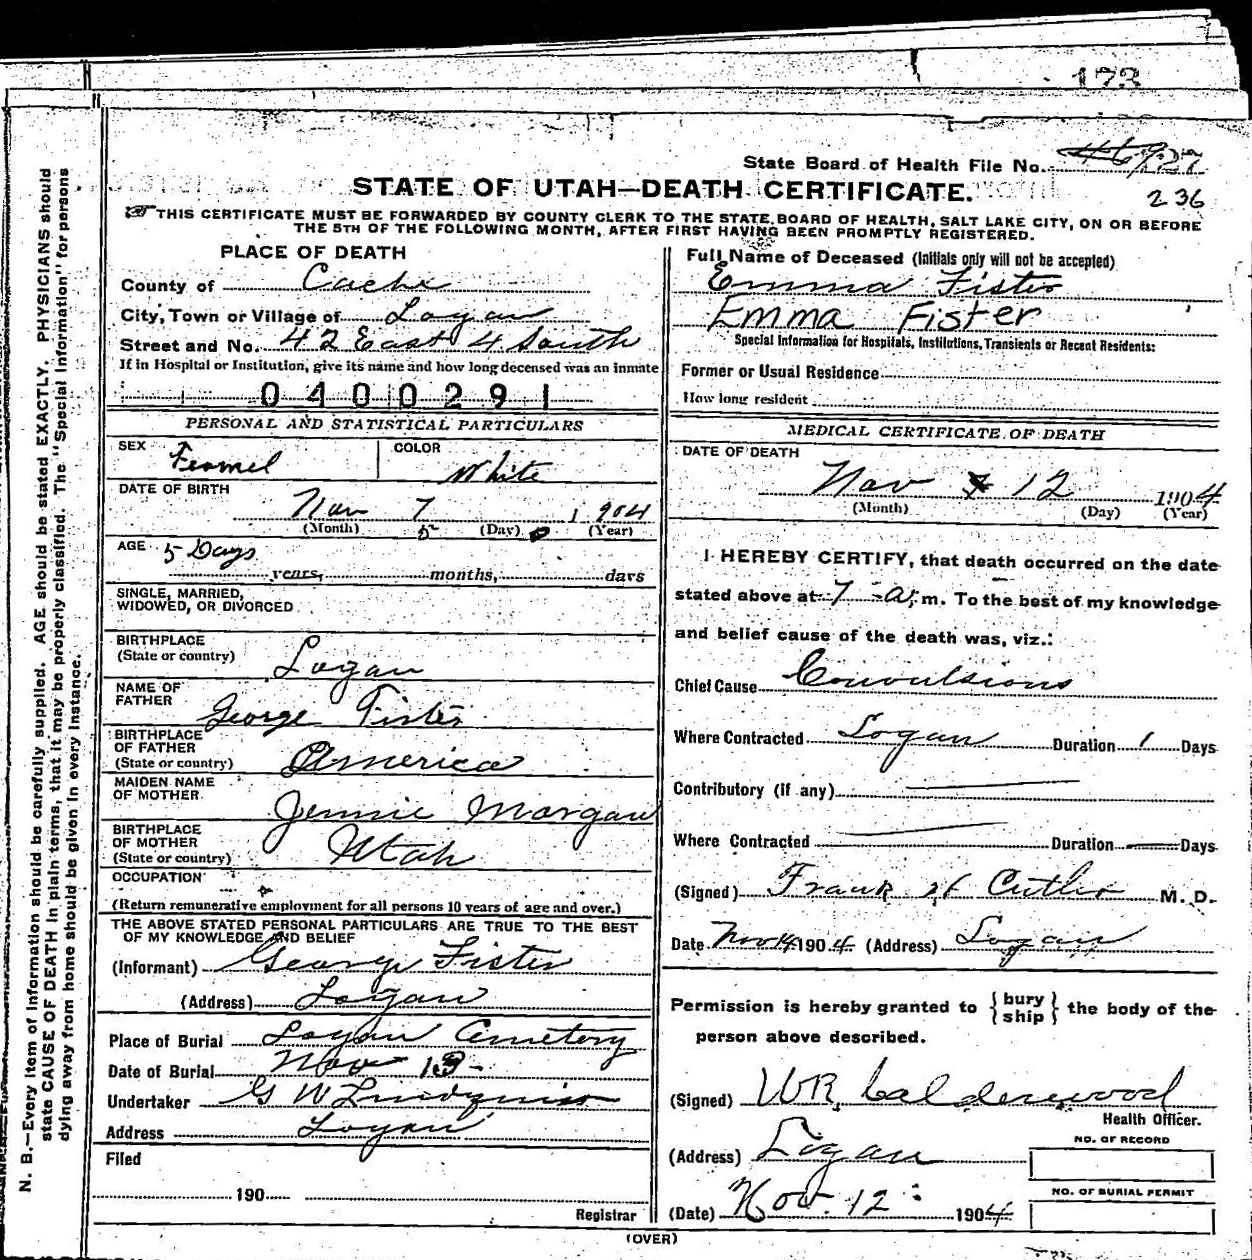 173
State Board of Health File No. 27
STATE OF UTAH—DEATH CERTIFICATE.
236
THIS CERTIFICATE MUST BE FORWARDED BY COUNTY CLERK TO THE STATE BOARD OF HEALTH, SALT LAKE CITY, ON OR BEFORE
THE 5TH OF THE FOLLOWING MONTH, AFTER FIRST HAVING BEEN PROMPTLY REGISTERED.
PLACE OF DEATH
County of Cache
City, Town or Village of Logan
Street and No. 42 East 4 South
If in Hospital or Institution, give its name and how long deceased was an inmate
0400291
PERSONAL AND STATISTICAL PARTICULARS
SEX Femel
COLOR White
DATE OF BIRTH
Nov 7 1904
(Month) 5 (Day) 0 (Year)
AGE 5 Days
years, months, days
SINGLE, MARRIED,
WIDOWED, OR DIVORCED
BIRTHPLACE
(State or country) Logan
NAME OF
FATHER George Fister
BIRTHPLACE
OF FATHER
(State or country) America
MAIDEN NAME
OF MOTHER Jennie Morgan
BIRTHPLACE
OF MOTHER
(State or country) Utah
OCCUPATION
(Return remunerative employment for all persons 10 years of age and over.)
THE ABOVE STATED PERSONAL PARTICULARS ARE TRUE TO THE BEST
OF MY KNOWLEDGE AND BELIEF
(Informant) George Fister
(Address) Logan
Place of Burial Logan Cemetery
Date of Burial Nov 13-
Undertaker G W Lindquist
Address Logan
Filed
190
Registrar
Full Name of Deceased (Initials only will not be accepted)
Emma Fister
Emma Fister
Special Information for Hospitals, Institutions, Transients or Recent Residents:
Former or Usual Residence
How long resident
MEDICAL CERTIFICATE OF DEATH
DATE OF DEATH
Nov 12 1904
(Month) (Day) (Year)
I HEREBY CERTIFY, that death occurred on the date
stated above at 7 - a. m. To the best of my knowledge
and belief cause of the death was, viz.:
Chief Cause Convulsions
Where Contracted Logan Duration 1 Days
Contributory (if any)
Where Contracted Duration Days
(Signed) Frank H Cutler M. D.
Date Nov 14 1904 (Address) Logan
Permission is hereby granted to { bury ship } the body of the
person above described.
(Signed) WR Calderwood
Health Officer.
(Address) Logan
NO. OF RECORD
(Date) Nov. 12 1904
NO. OF BURIAL PERMIT
(OVER)
N. B.—Every item of information should be carefully supplied. AGE should be stated EXACTLY. PHYSICIANS should
state CAUSE OF DEATH in plain terms, that it may be properly classified. The "Special Information" for persons
dying away from home should be given in every instance.